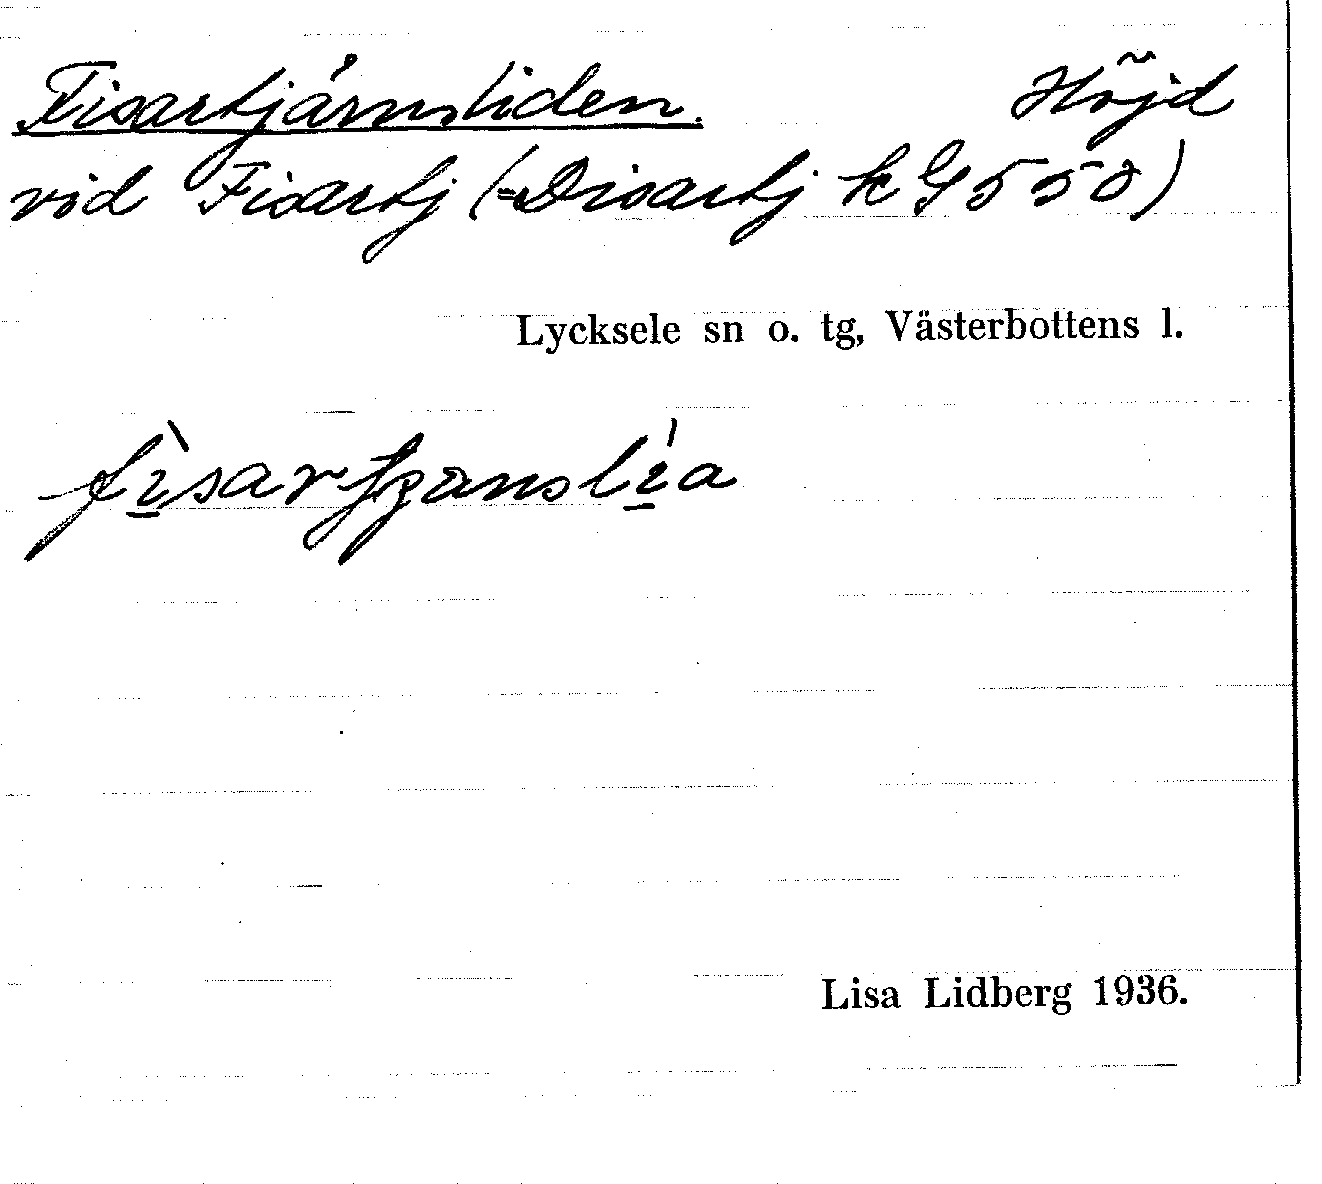 Fisartjärnsliden. Höjd
vid Fisartj (=Disartj k G 550)
Lycksele sn o. tg, Västerbottens l.
Lisa Lidberg 1936.